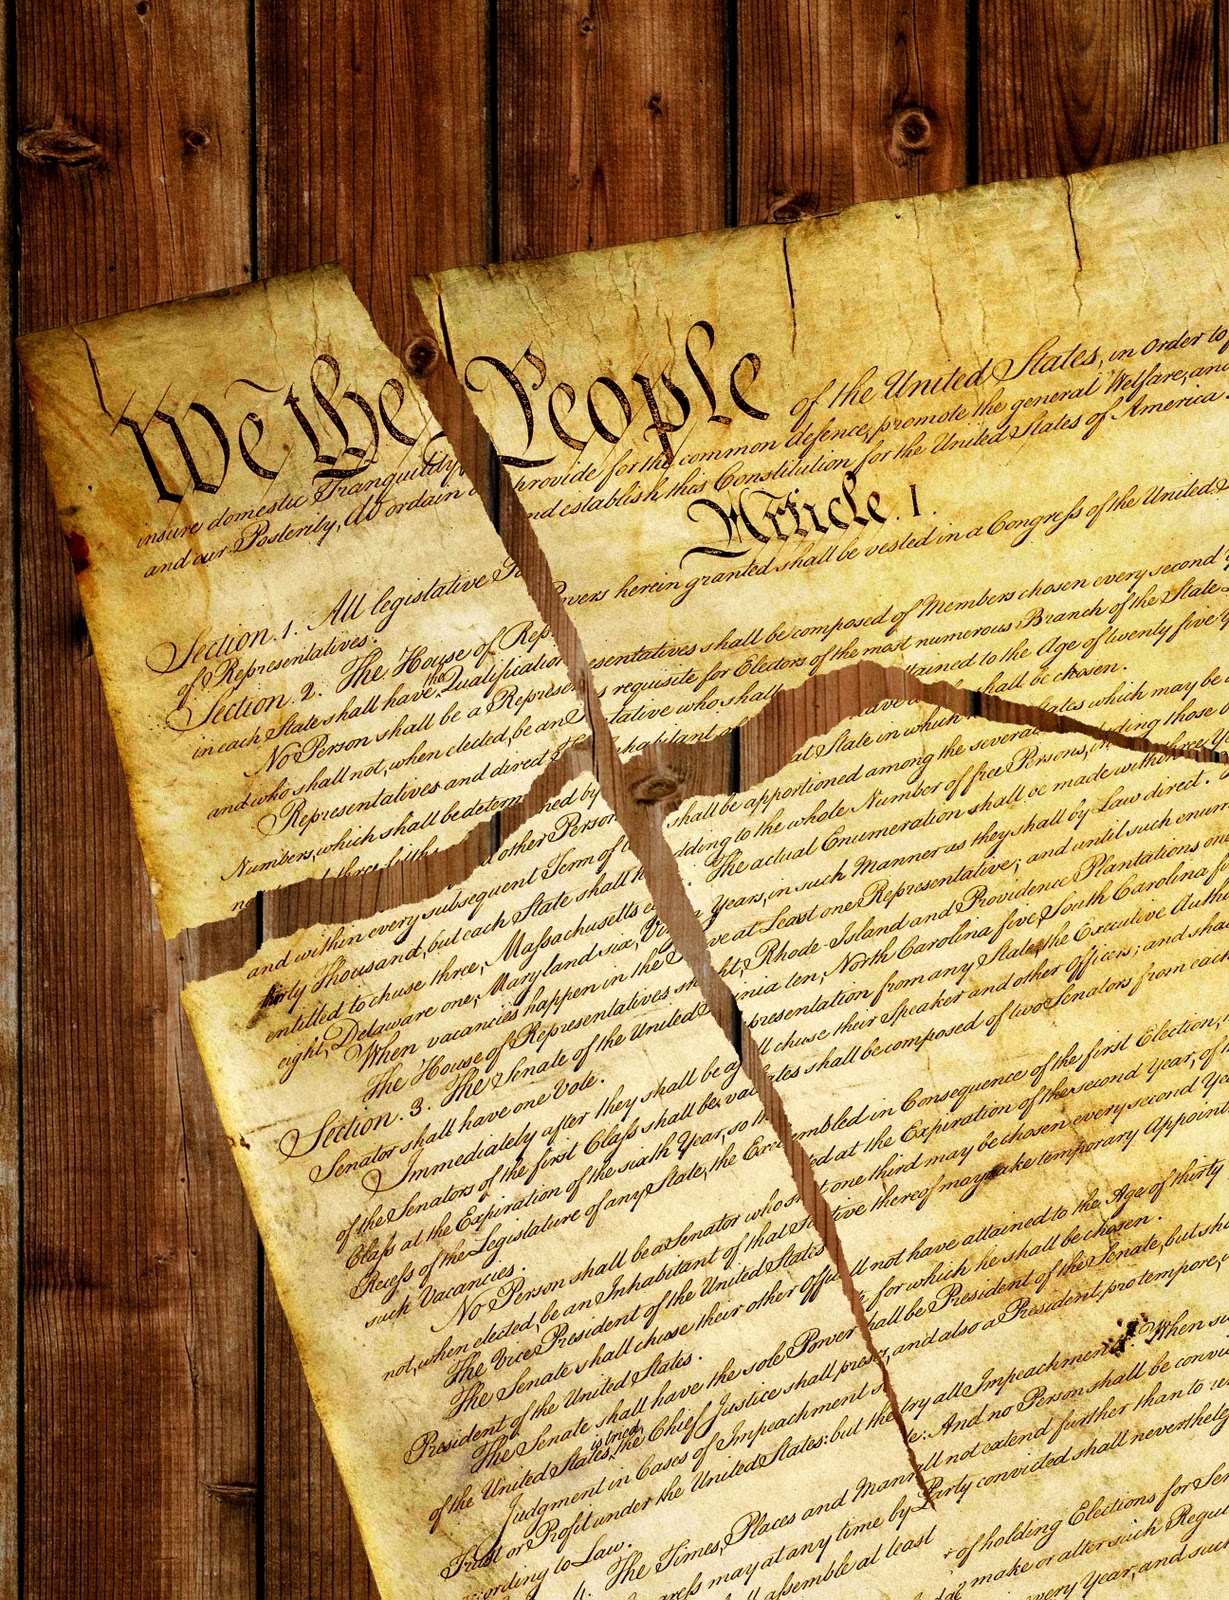 We the People of the United States, in Order to
insure domestic Tranquility, provide for the common defence, promote the general Welfare, and
and our Posterity, do ordain and establish this Constitution for the United States of America
Article. I.
Section. 1. All legislative Powers herein granted shall be vested in a Congress of the United
of Representatives.
Section. 2. The House of Representatives shall be composed of Members chosen every second
in each State shall have the Qualifications requisite for Electors of the most numerous Branch of the State
No Person shall be a Representative who shall have attained to the Age of twenty five
and who shall not, when elected, be an Inhabitant of that State in which he shall be chosen.
Representatives and direct shall be apportioned among the several States which may be
Numbers, which shall be determined by adding to the whole Number of free Persons, including those
three fifths other Persons. The actual Enumeration shall be made within three
and within every subsequent Term of Years, in such Manner as they shall by Law direct.
thirty Thousand, but each State shall have at Least one Representative; and until such
entitled to chuse three, Massachusetts eight, Rhode-Island and Providence Plantations one
eight, Delaware one, Maryland six, Virginia ten, North Carolina five, South Carolina
When vacancies happen in the Representation from any State, the Executive
The House of Representatives shall chuse their Speaker and other Officers; and
Section. 3. The Senate of the United States shall be composed of two Senators from each
Senator shall have one Vote.
Immediately after they shall be assembled in Consequence of the first Election,
of the Senators of the first Class shall be vacated at the Expiration of the second Year, of
Class at the Expiration of the sixth Year, so that one third may be chosen every second
Recess of the Legislature of any State, the Executive thereof may make temporary
such Vacancies.
No Person shall be a Senator who shall not have attained to the Age of thirty
not, when elected, be an Inhabitant of that State for which he shall be chosen.
The Vice President of the United States shall be President of the Senate, but
The Senate shall chuse their other Officers, and also a President pro tempore,
President of the United States.
The Senate shall have the sole Power to try all Impeachments. When
of the United States is tried, the Chief Justice shall preside: And no Person shall be
Judgment in Cases of Impeachment shall not extend further than to
Trust or Profit under the United States: but the Party convicted shall
according to Law.
4. The Times, Places and Manner of holding Elections for
may at any time by make or alter such
assemble at least every Year, and such